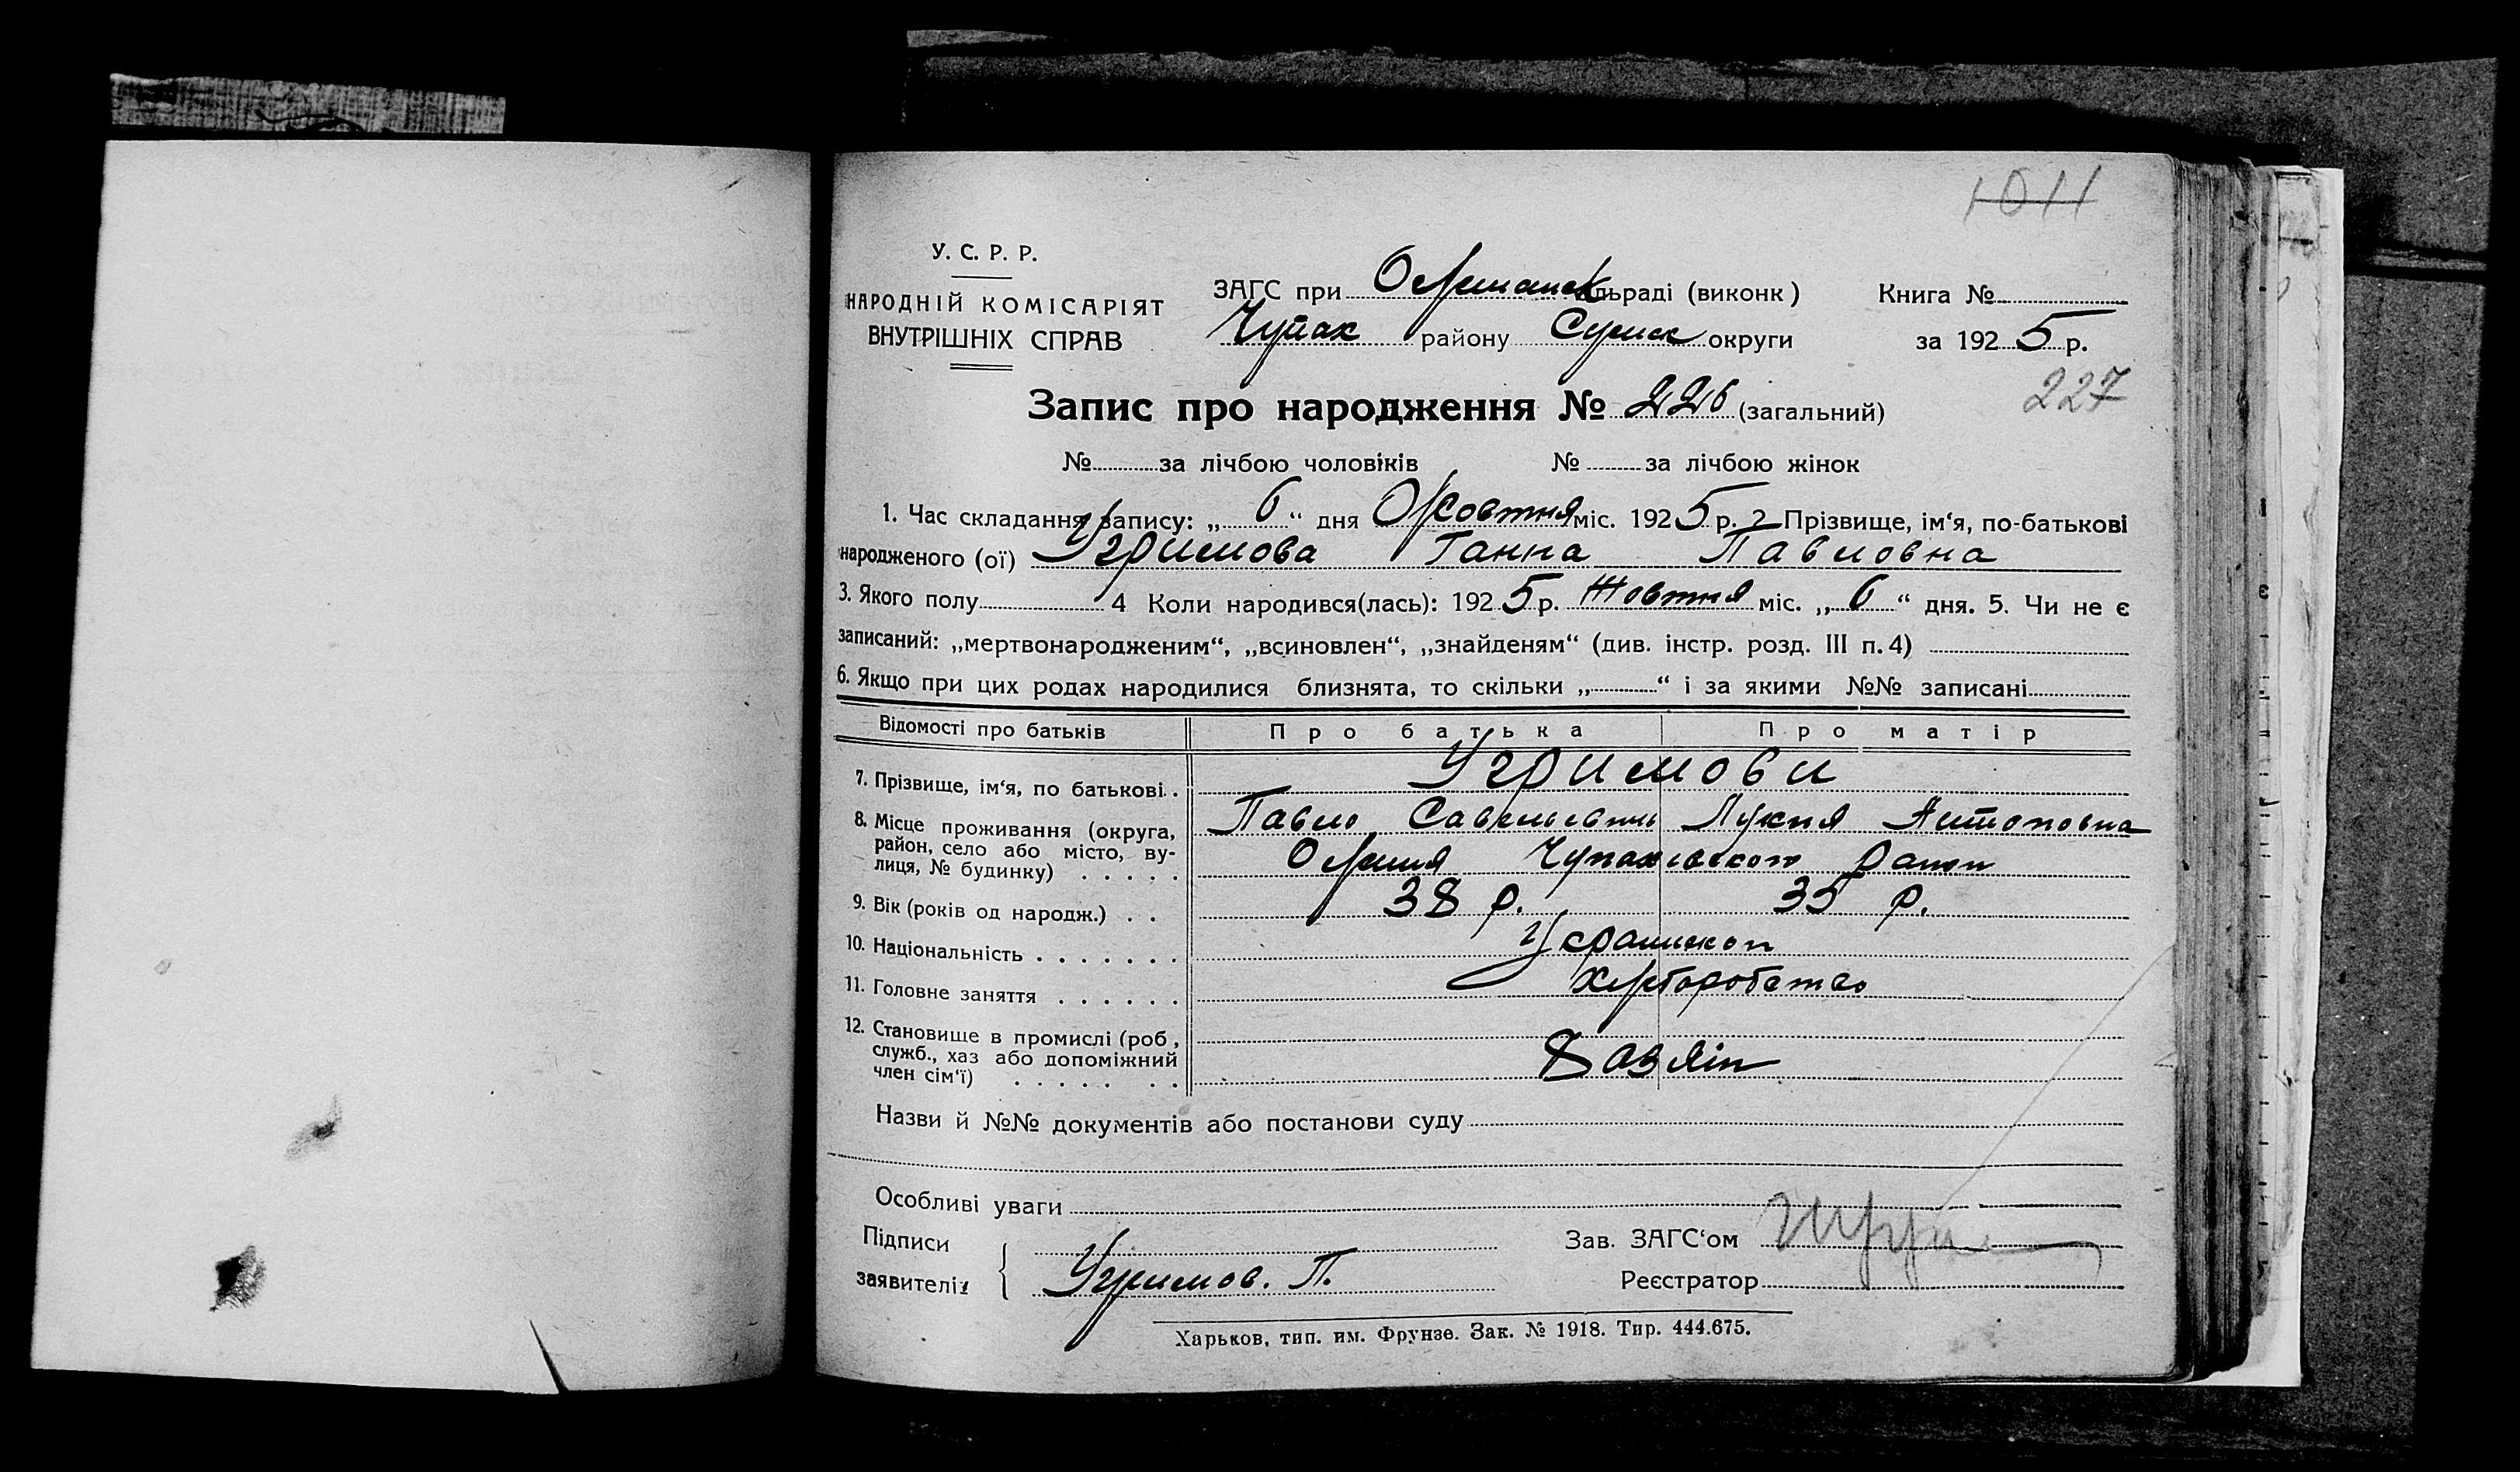 1011
У. С. Р. Р.
НАРОДНІЙ КОМІСАРІЯТ
ВНУТРІШНІХ СПРАВ
ЗАГС при Олешанск сільраді (виконк)
Чупах району Сумск округи
Книга №
за 1925 р.
227
Запис про народження № 226 (загальний)
№ за лічбою чоловіків № за лічбою жінок
1. Час складання запису: „6“ дня Жовтня міс. 1925 р. 2 Прізвище, ім‘я, по-батькові
народженого (ої) Угримова Ганна Павловна
3. Якого полу 4 Коли народився(лась): 1925 р. Жовтня міс. „6“ дня. 5. Чи не є
записаний: „мертвонародженим“, „всиновлен“, „знайденям“ (див. інстр. розд. III п. 4)
6. Якщо при цих родах народилися близнята, то скільки „ “ і за якими №№ записані
Відомості про батьків Про батька Про матір
7. Прізвище, ім‘я, по батькові Угримови
Павло Савельевич Лукия Антоновна
8. Місце проживання (округа,
район, село або місто, ву-
лиця, № будинку) Олешя Чупаховского
9. Вік (років од народж.) 38 р. 35 р.
10. Національність
11. Головне заняття Хлеборобство
12. Становище в промислі (роб,
служб., хаз або допоміжний
член сім‘ї)
Назви й №№ документів або постанови суду
Особливі уваги
Підписи
заявителів Угримов. П.
Зав. ЗАГС‘ом
Реєстратор
Харьков, тип. им. Фрунзе. Зак. № 1918. Тир. 444.675.